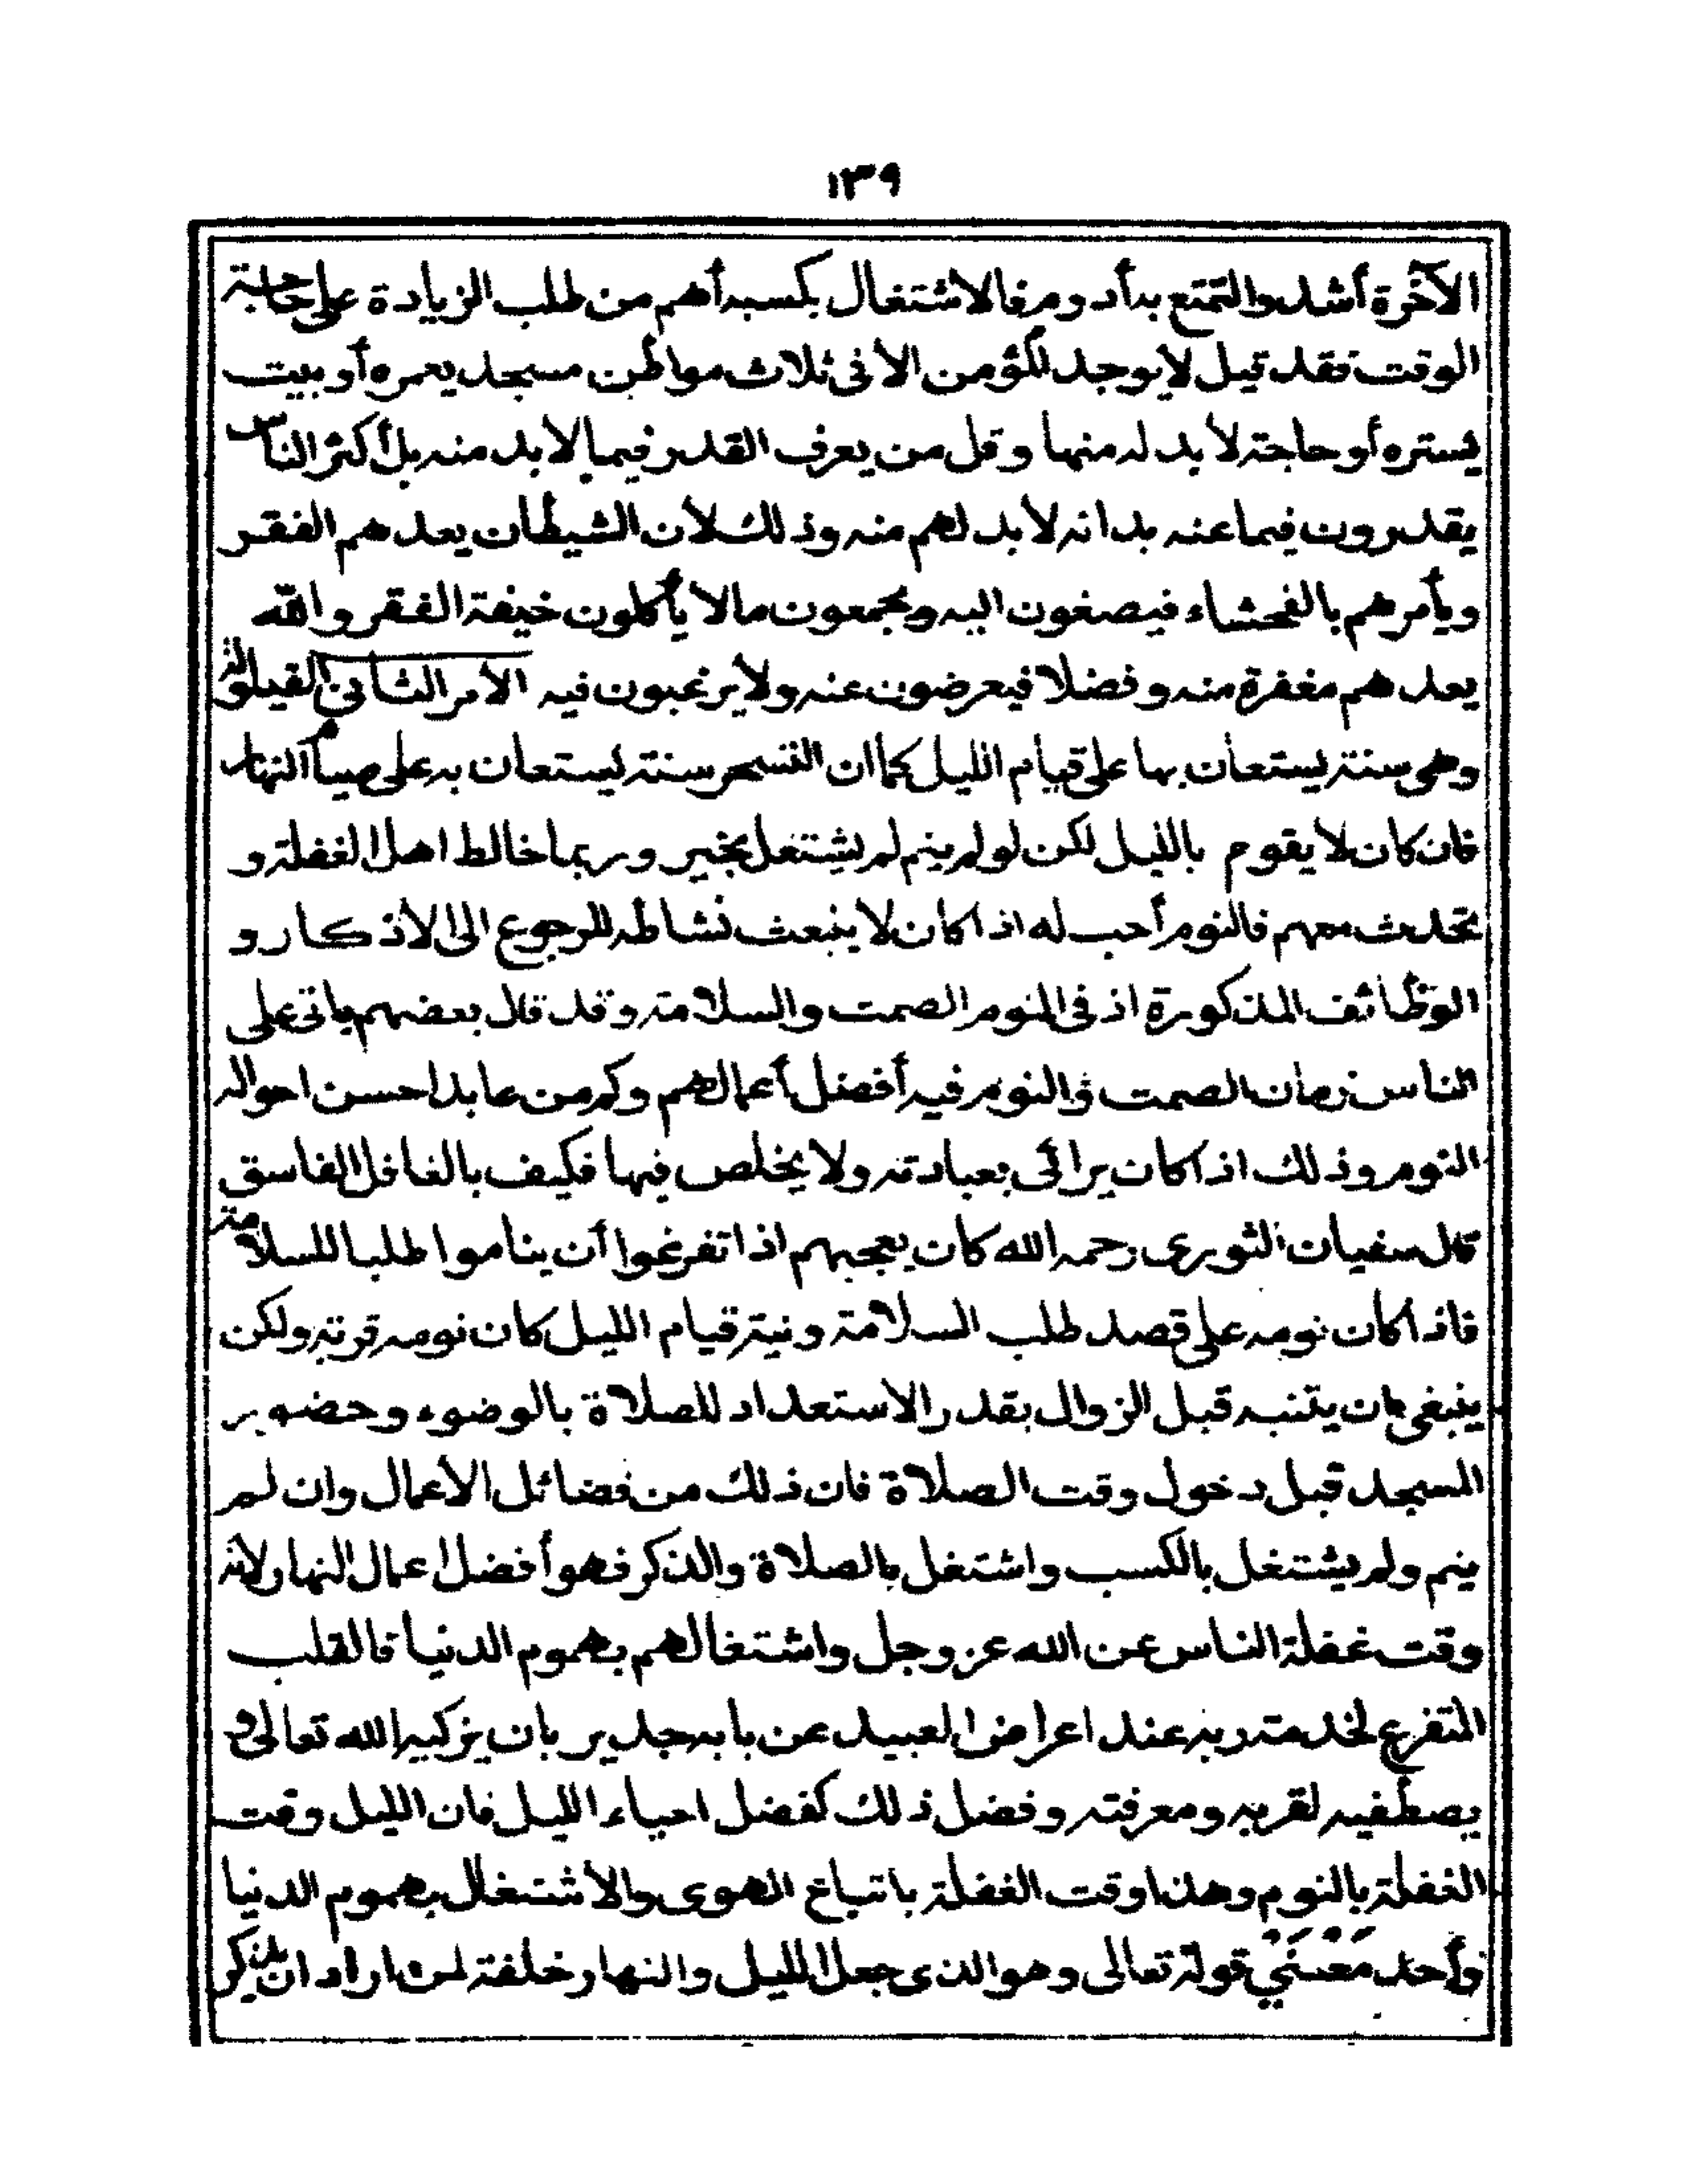 ١٣٩
الآخرة أشد والتمتع به أدوم فالاشتغال بكسبه أهم من طلب الزيادة على حاجة
الوقت فقد قيل لا يوجد المؤمن الا فى ثلاث مواطن مسجد يعمره أو بيت
يستره أو حاجة لا بد له منها وقل من يعرف القدر فيما لا بد منه بل أكثر الناس
يقدرون فيما عنه بد انه لا بد لهم منه وذلك لأن الشيطان يعدهم الفقر
ويأمرهم بالفحشاء فيصغون اليه ويجمعون مالا يأكلون خيفة الفقر والله
يعدهم مغفرة منه وفضلا فيعرضون عنه ولا يرغبون فيه الأمر الثانى القيلولة
وهى سنة يستعان بها على قيام الليل كما ان التسحر سنة يستعان به على صيام النهار
فان كان لا يقوم بالليل لكن لو لم ينم لم يشتغل بخير وربما خالط اهل الغفلة و
تحدث معهم فالنوم أحب له اذا كان لا ينبعث نشاطه للرجوع الى الأذكار و
الوظائف المذكورة اذ فى النوم الصمت والسلامة وقد قال بعضهم يأتى على
الناس زمان الصمت والنوم فيه أفضل أعمالهم وكم من عابد احسن احواله
النوم وذلك اذا كان يرائى بعبادته ولا يخلص فيها فكيف بالغافل الفاسق
قال سفيان الثورى رحمه الله كان يعجبهم اذا تفرغوا أن يناموا طلبا للسلامة
فاذا كان نومه على قصد طلب السلامة ونية قيام الليل كان نومه قربة ولكن
ينبغى ان يتنبه قبل الزوال بقدر الاستعداد للصلاة بالوضوء وحضور
المسجد قبل دخول وقت الصلاة فان ذلك من فضائل الأعمال وان لم
ينم ولم يشتغل بالكسب واشتغل بالصلاة والذكر فهو أفضل اعمال النهار لأنه
وقت غفلة الناس عن الله عز وجل واشتغالهم بهموم الدنيا فالقلب
المتفرغ لخدمة ربه عند اعراض العبيد عن بابه جدير بان يزكيه الله تعالى و
يصطفيه لقربه ومعرفته وفضل ذلك كفضل احياء الليل فان الليل وقت
الغفلة بالنوم وهذا وقت الغفلة باتباع الهوى والاشتغال بهموم الدنيا
وأحد مَعْنَيَيْ قوله تعالى وهو الذى جعل الليل والنهار خلفة لمن اراد ان يذكر